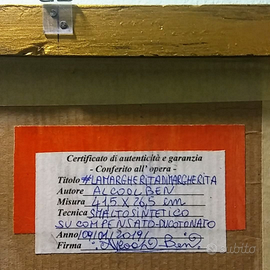 Certificato di autenticità e garanzia
- Conferito all' opera -
Titolo #LAMARGHERITADIMARGHERITA
Autore ALCOOL BEN
Misura 41,5 X 26,5 cm
Tecnica SMALTO SINTETICO
SU COMPENSATO-DICOTONATO
Anno 09/01/2019
Firma Alcool Ben
subito